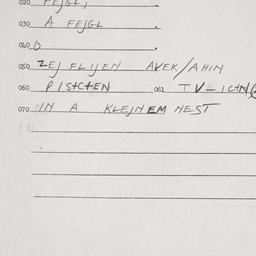 020 FEJGL,
030 A FEJGL
040 O
050 ZEJ FLIJEN AVEK/AHIN
060 PISTCHEN 061
070 IN A KLEJNEM NEST